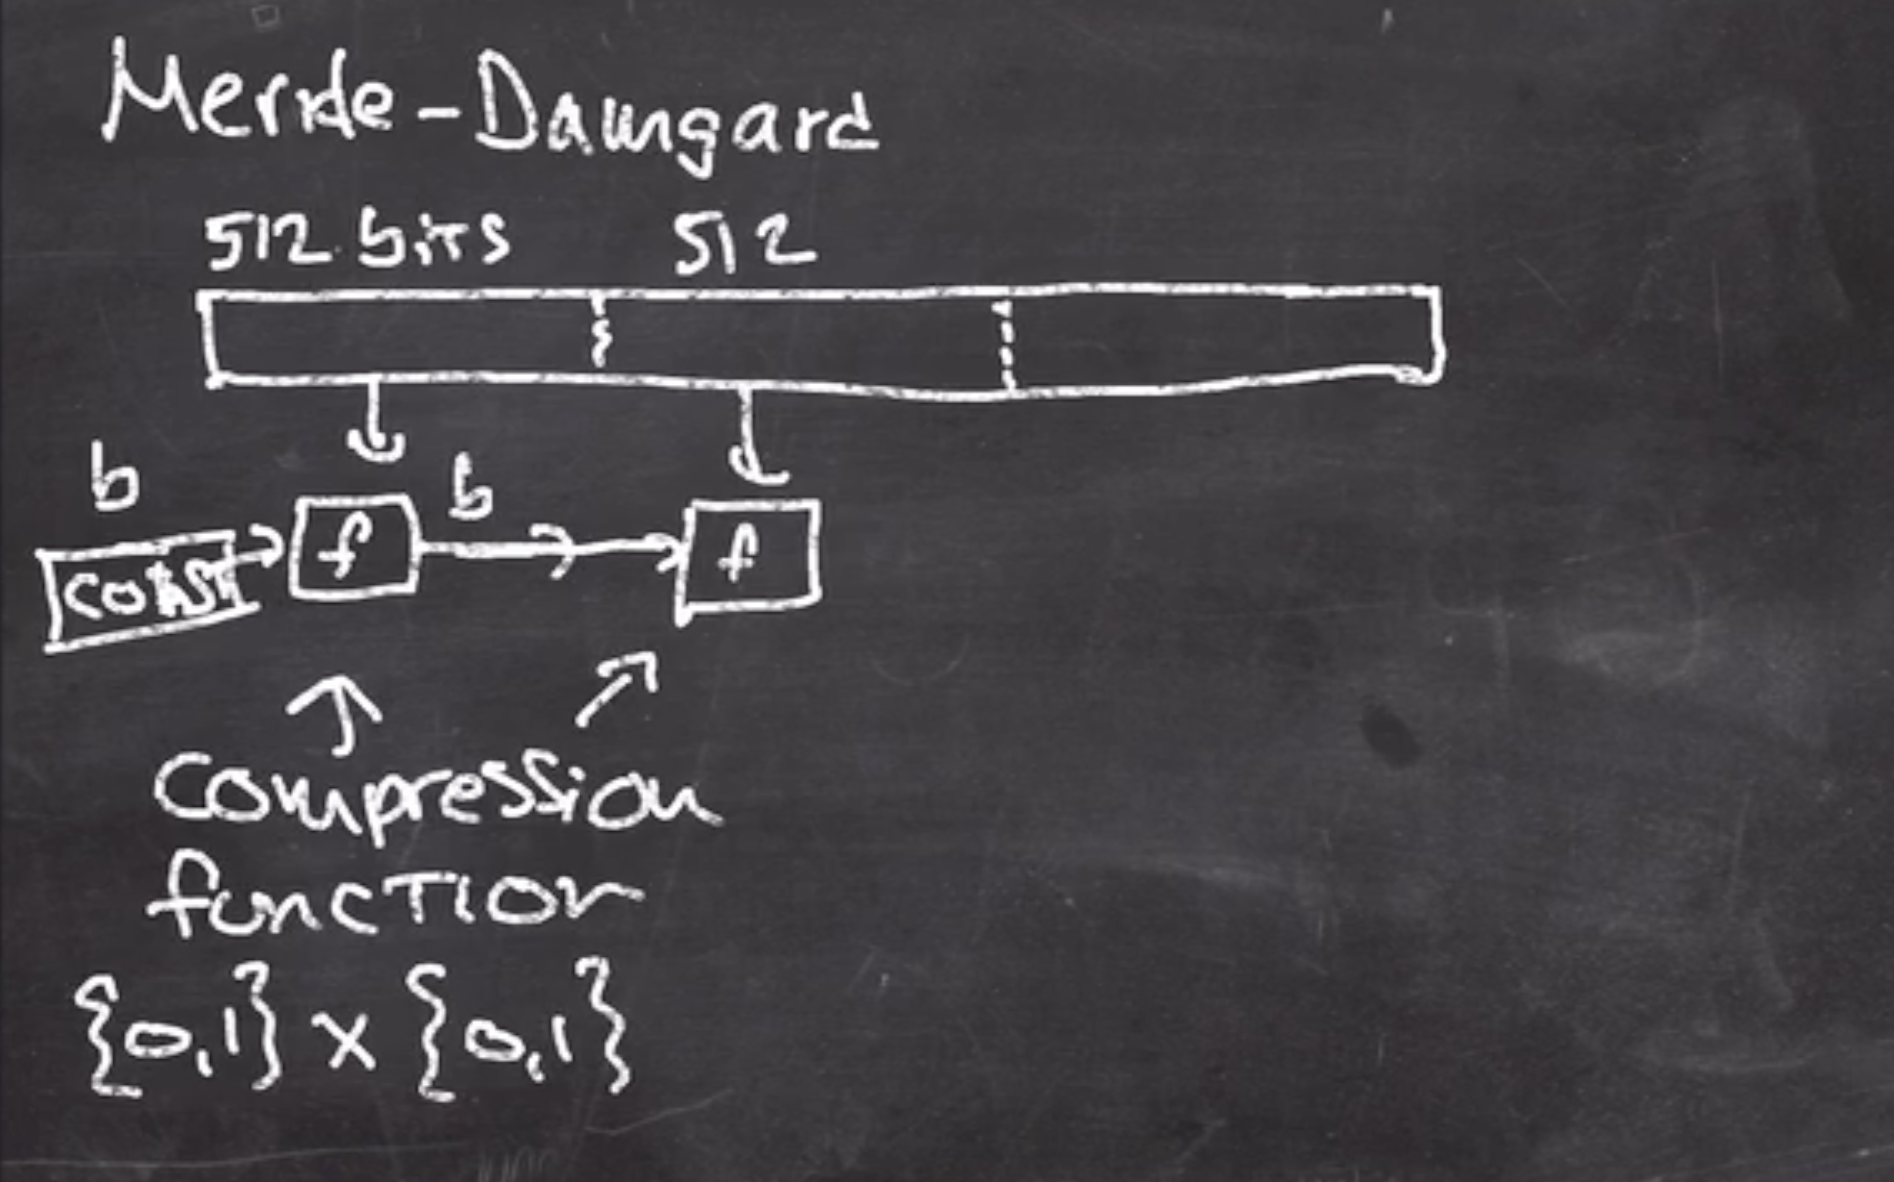 Merkle-Damgard
512 bits 512
b
b
const
f
f
compression
function
{0,1} x {0,1}